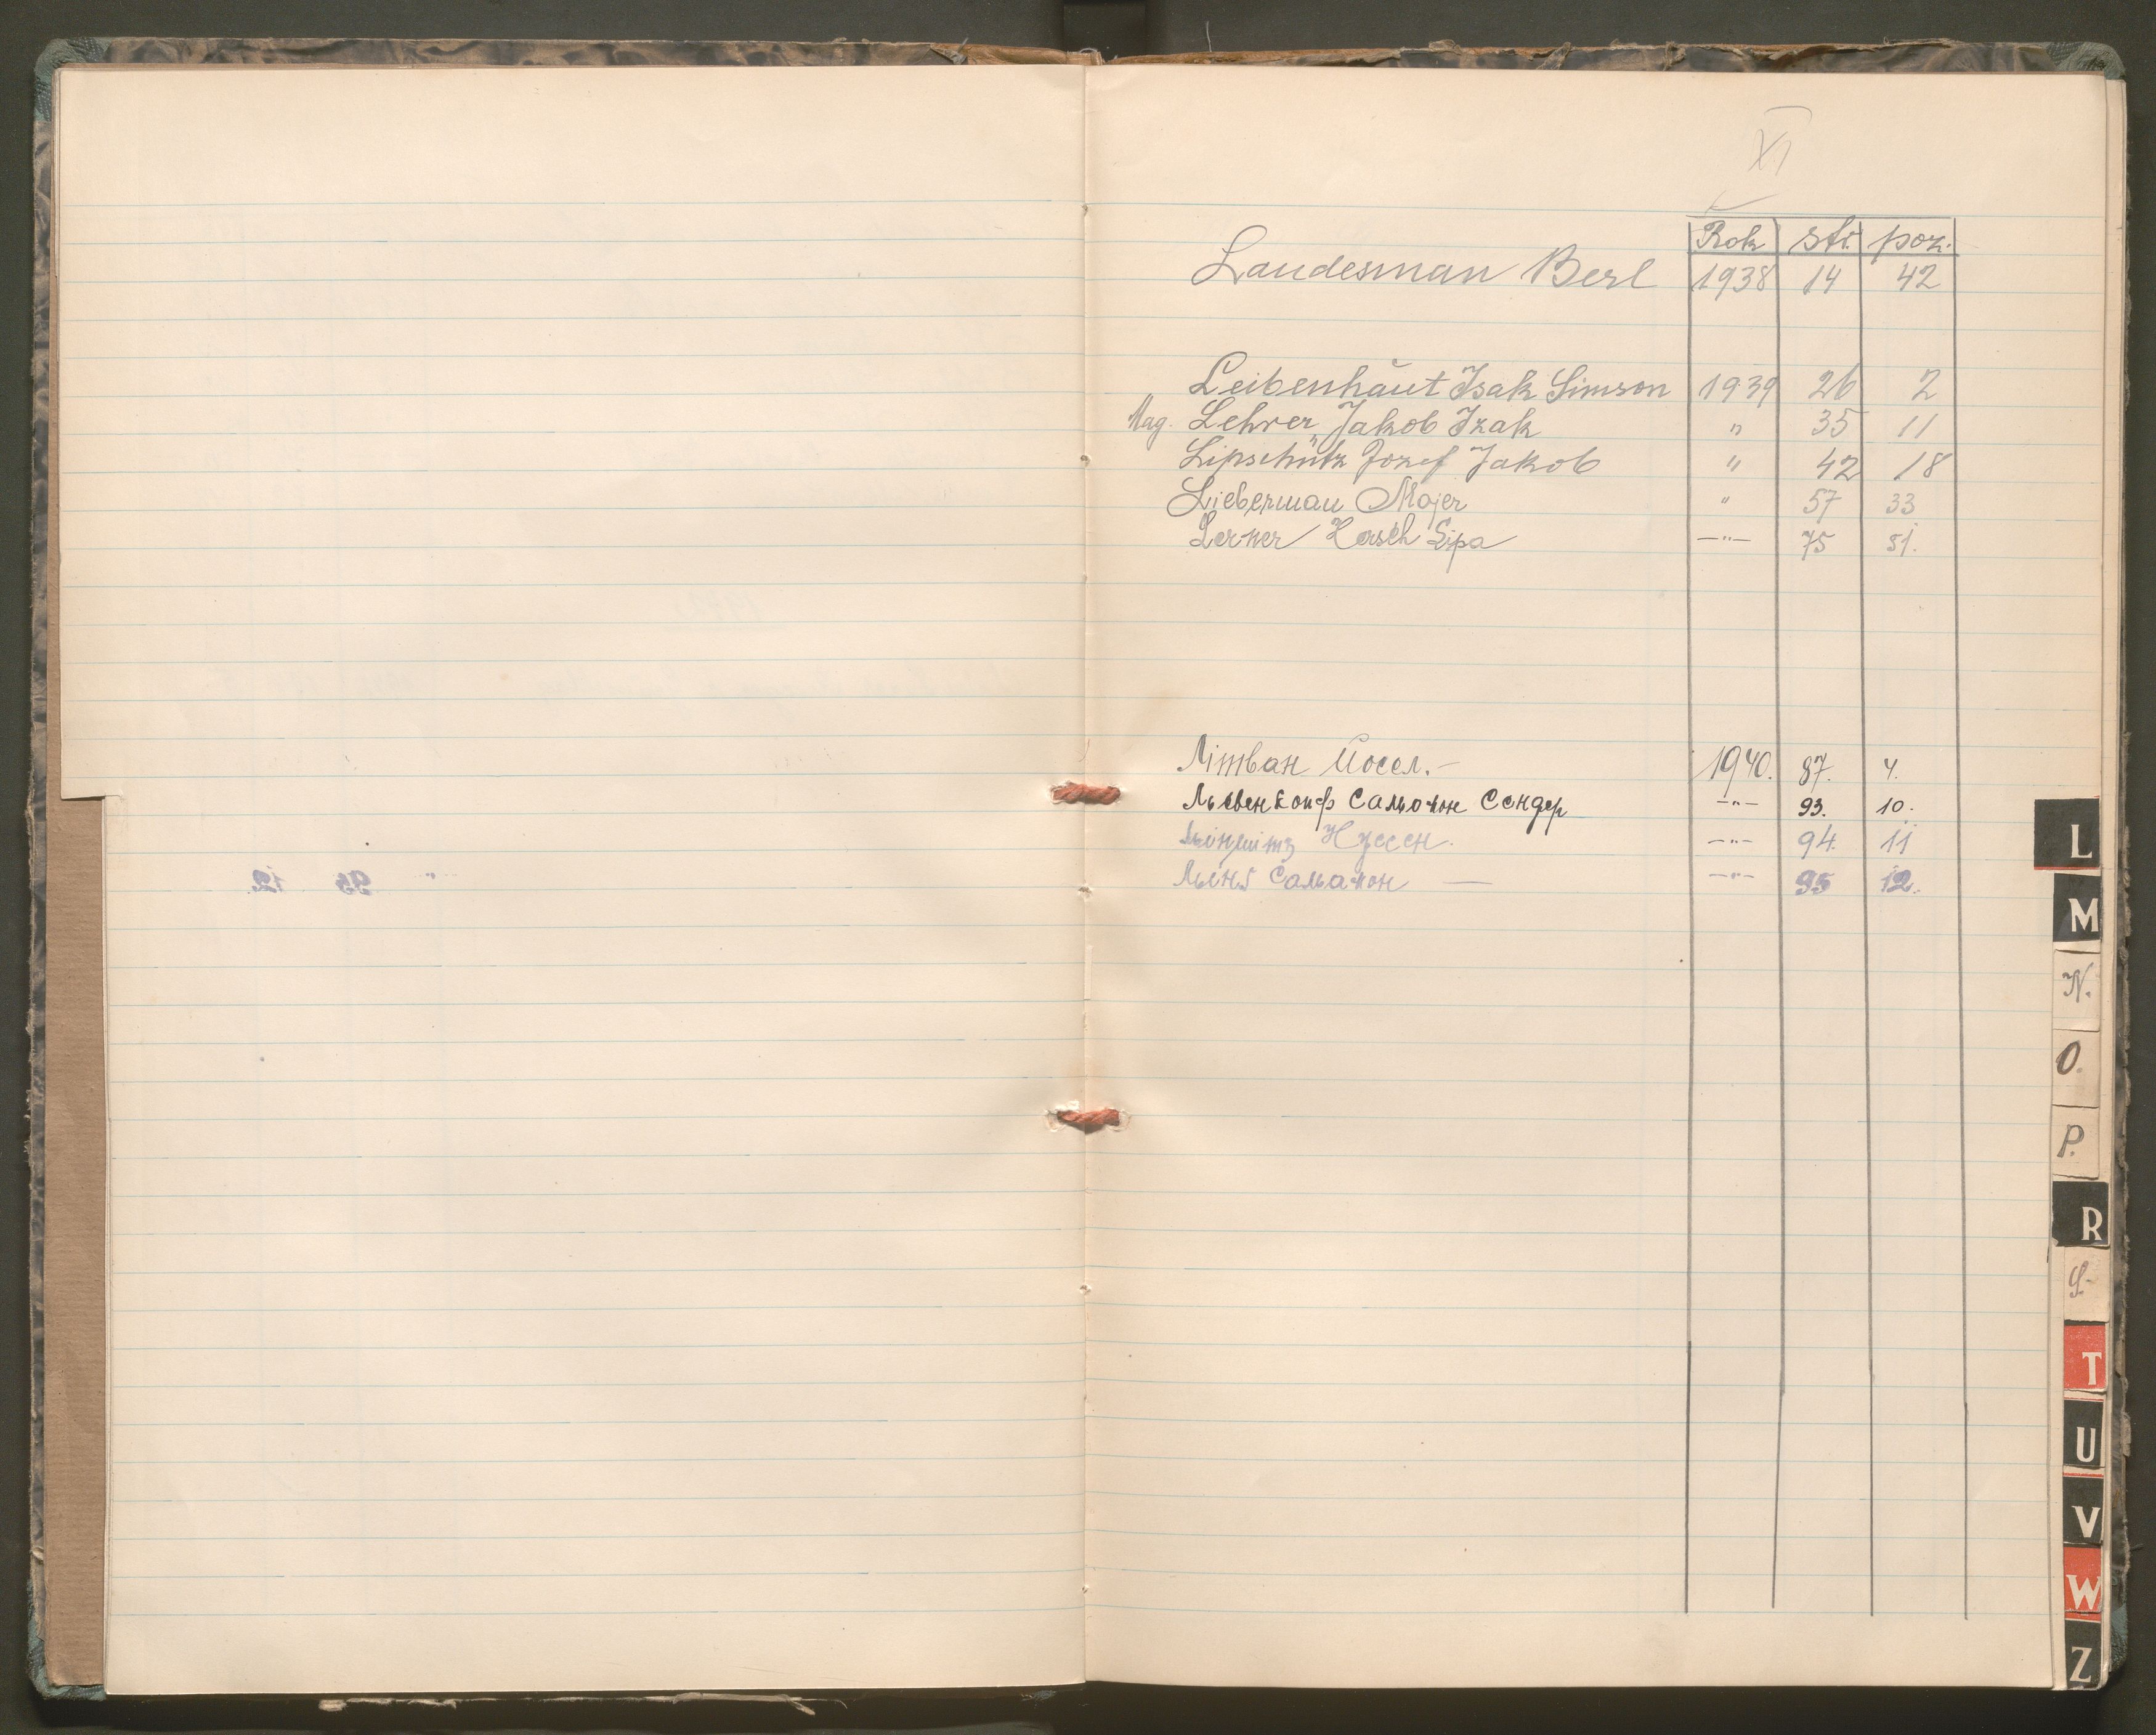 XI
Rok str. poz.
Landesman Berl 1938 14 42
Leibenhaut Isak Simson 1939 26 2
Mag. Lehrer Jakob Izak " 35 11
Lipschütz Jozef Jakob " 42 18
Lieberman Majer " 57 33
Lerner Hersch Lipa —"— 75 51.
Літван Йосел.— 1940. 87. 4.
Львенкопф Саломон Сендер —"— 93. 10.
Нусен. —"— 94. 11
Саламон — —"— 95 12.
L
M
N.
O.
P.
R
S.
T
U
V
W
Z